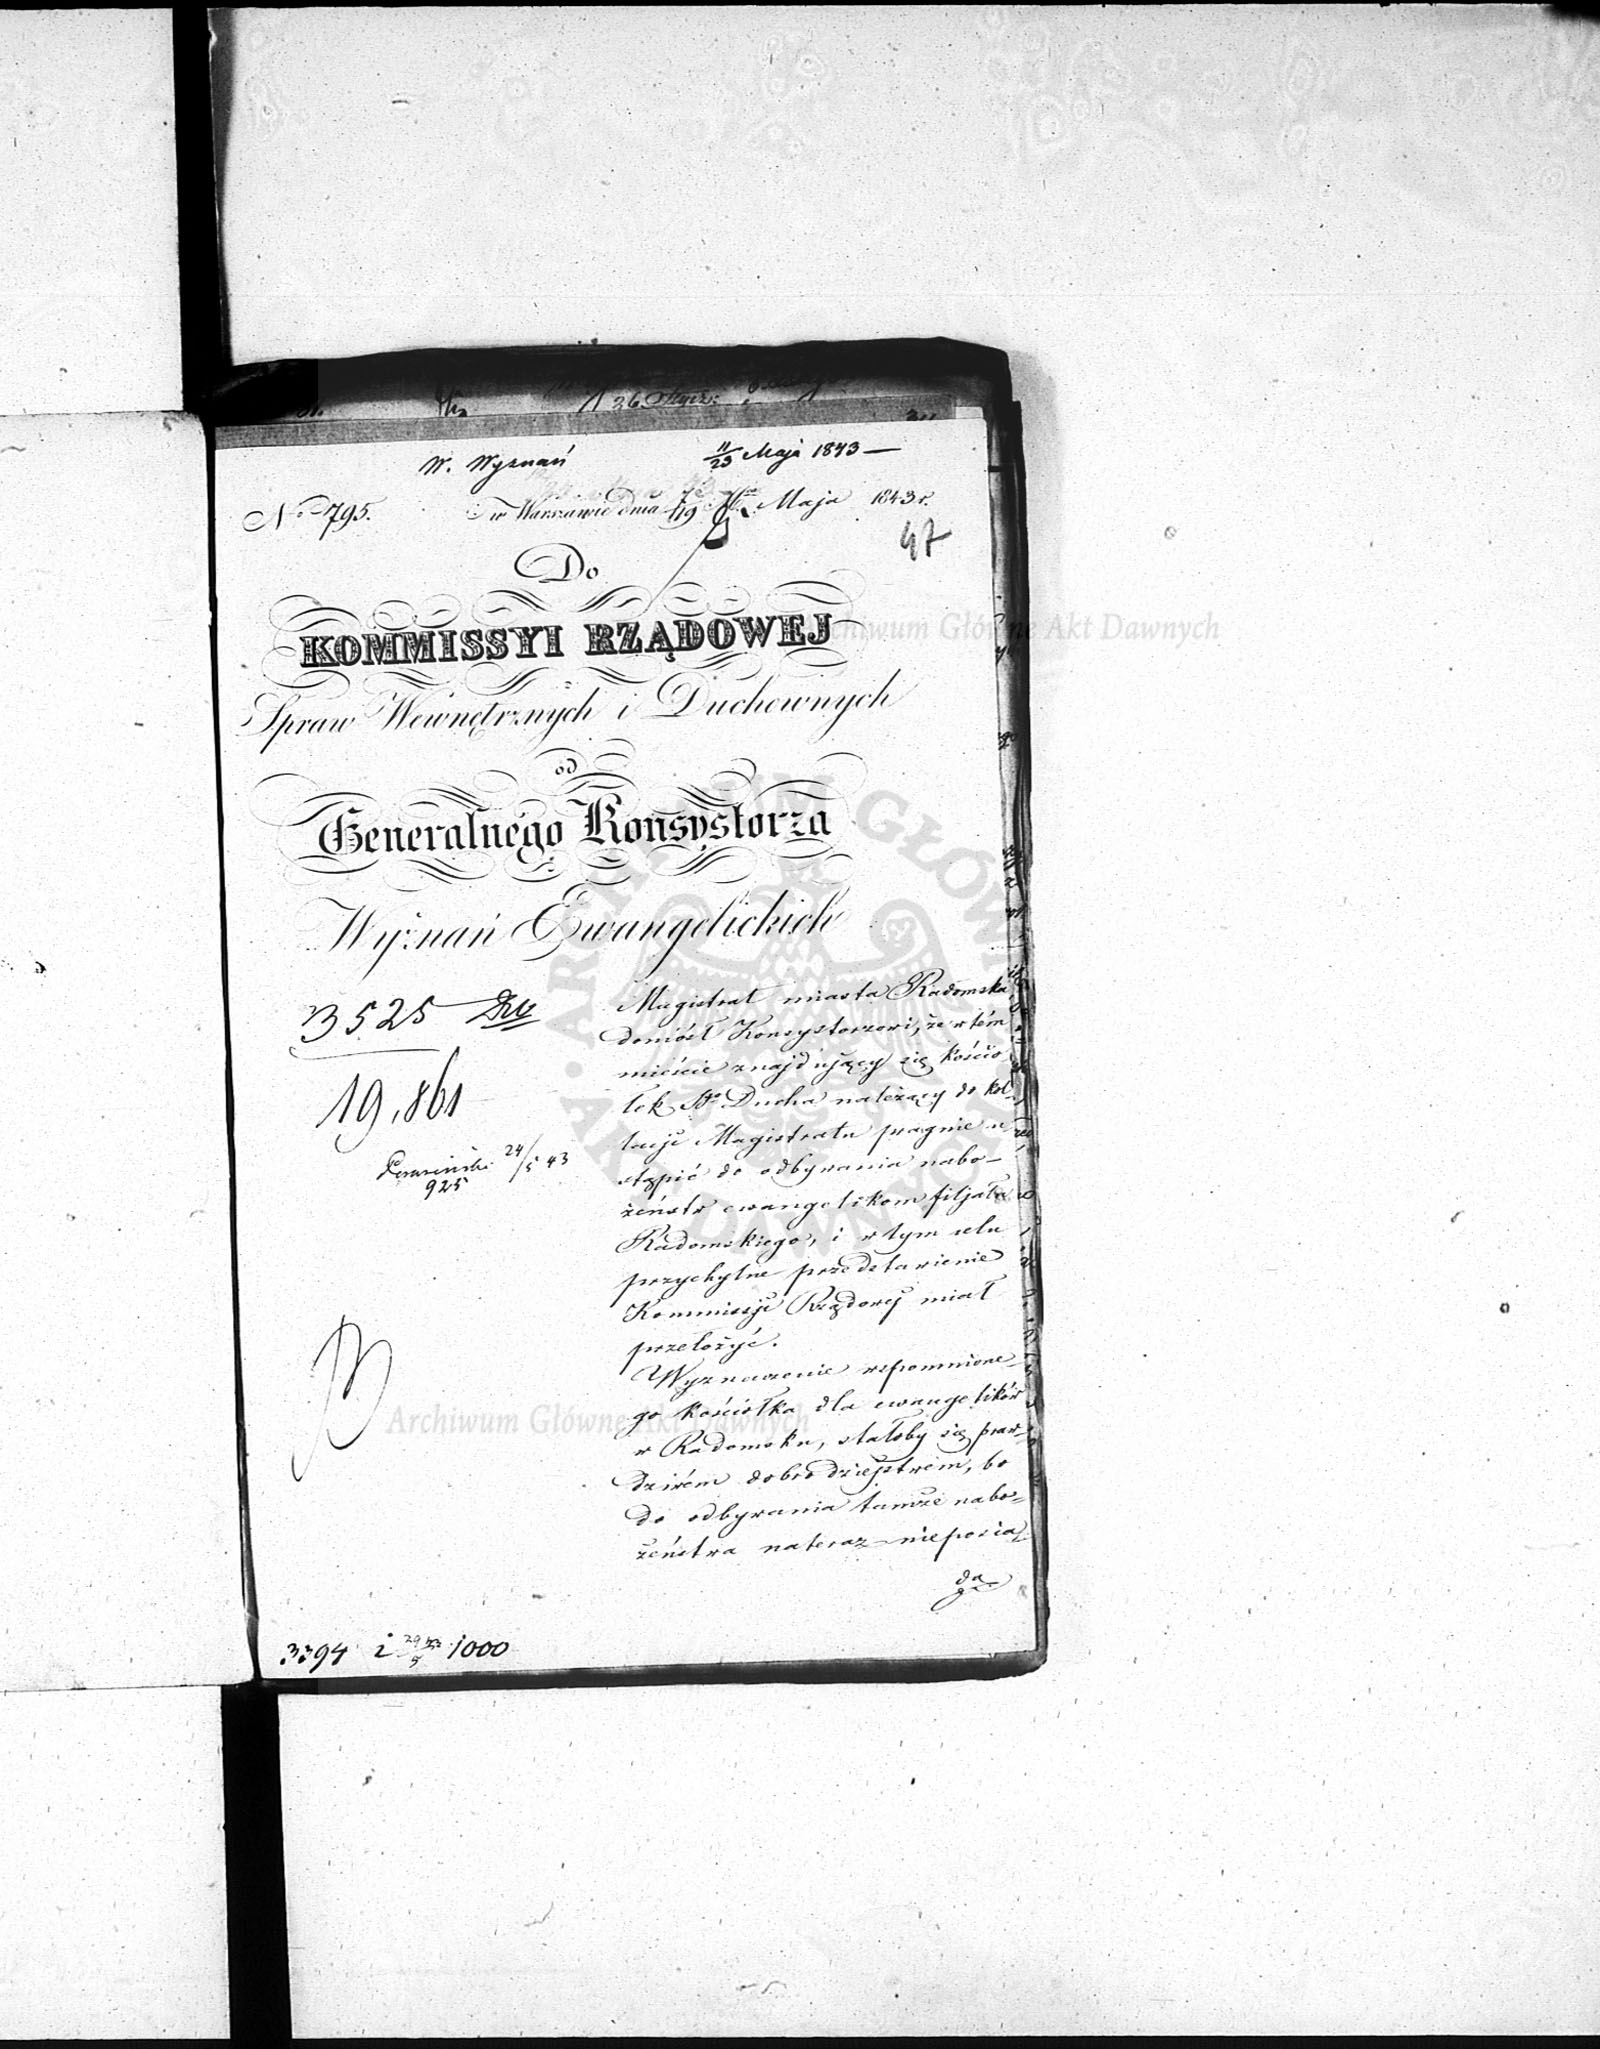 W. Wyznań 11/23 Maja 1843 —
No 795. w Warszawie dnia 7/19 Maja 1843 r.
47
Do
KOMMISSYI RZĄDOWEJ
Spraw Wewnętrznych i Duchownych
od
Generalnego Konsystorza
Wyznań Ewangelickich
3525
19,861
24/5 43
925
Magistrat miasta Radomska
doniósł Konsystorzowi, że w tém
mieście znajdujący się kościo
łek Sgo Ducha należący do kol-
lacji Magistratu pragnie u
stąpić do odbywania nabo-
żeństw ewangelikom filjału
Radomskiego, i w tym celu
przychylne przedstawienie
Kommissji Rządowej miał
przełożyć.
Wyznaczenie wspomnione-
go kościołka dla ewangelików
w Radomsku, stałoby się praw-
dziwém dobrodziejstwem, bo
do odbywania tamże nabo-
żeństwa nateraz nieposia-
da
3394 i 1000
Archiwum Główne Akt Dawnych
Archiwum Główne Akt Dawnych
ARCHIWUM GŁÓWNE AKT DAWNYCH